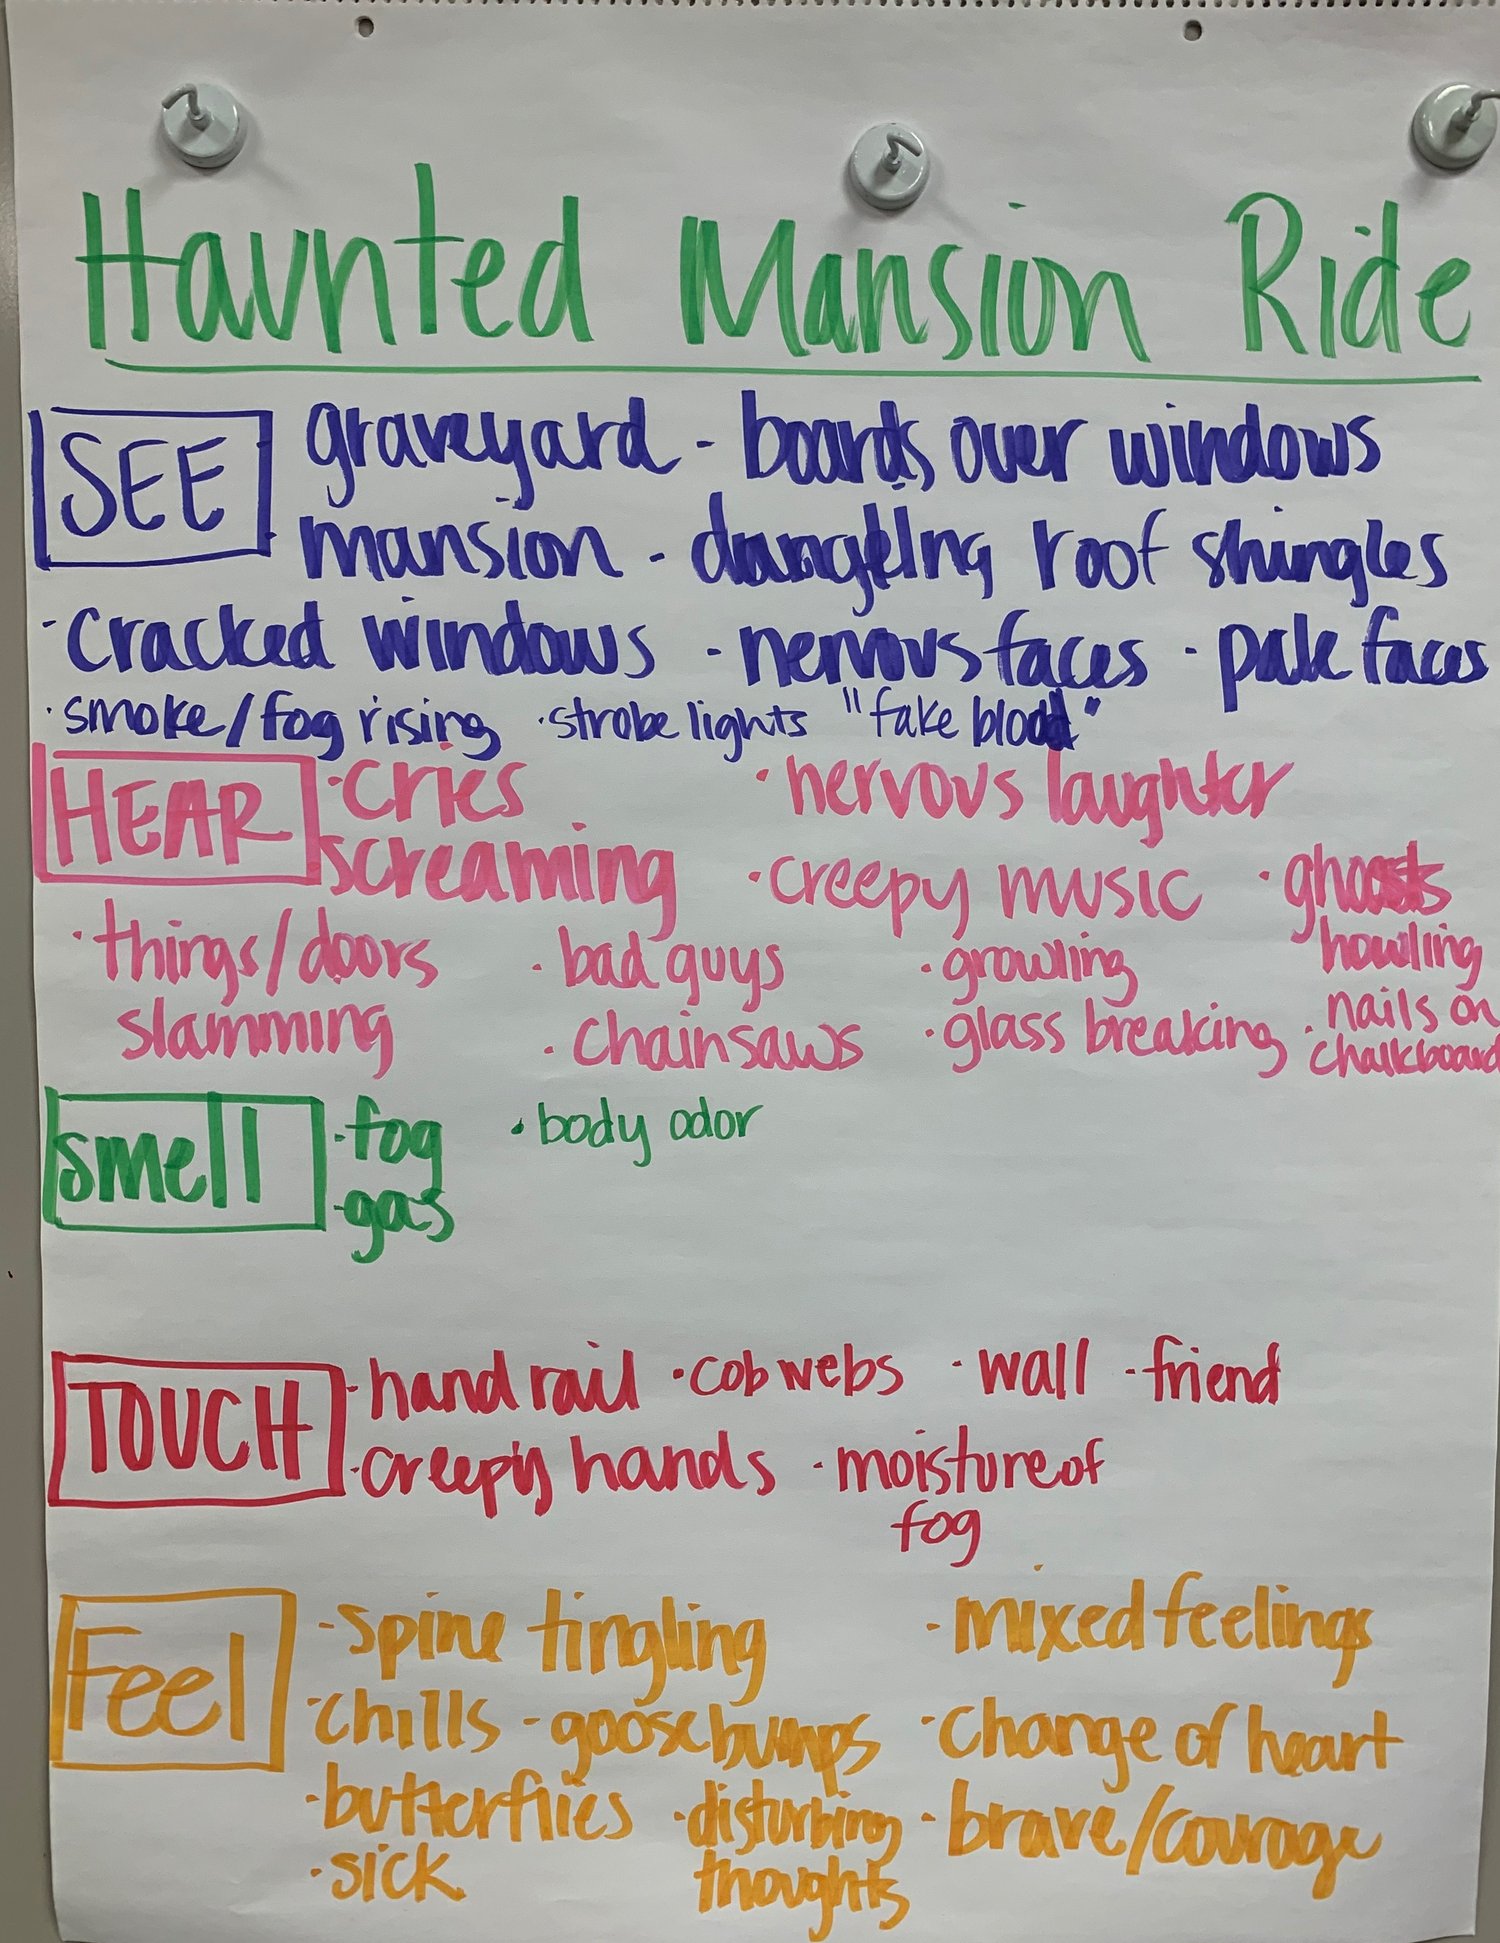 Haunted Mansion Ride
SEE graveyard - boards over windows
mansion - dangling roof shingles
· cracked windows · nervous faces · pale faces
· smoke/fog rising · strobe lights "fake blood"
HEAR · cries · nervous laughter
screaming · creepy music · ghosts
howling
· things/doors · bad guys · growling
slamming · chainsaws · glass breaking · nails on
chalkboard
smell · fog · body odor
· gas
TOUCH · hand rail · cob webs · wall · friend
· creepy hands · moisture of
fog
Feel · spine tingling · mixed feelings
· chills - goosebumps · change of heart
· butterflies · disturbing · brave/courage
· sick thoughts